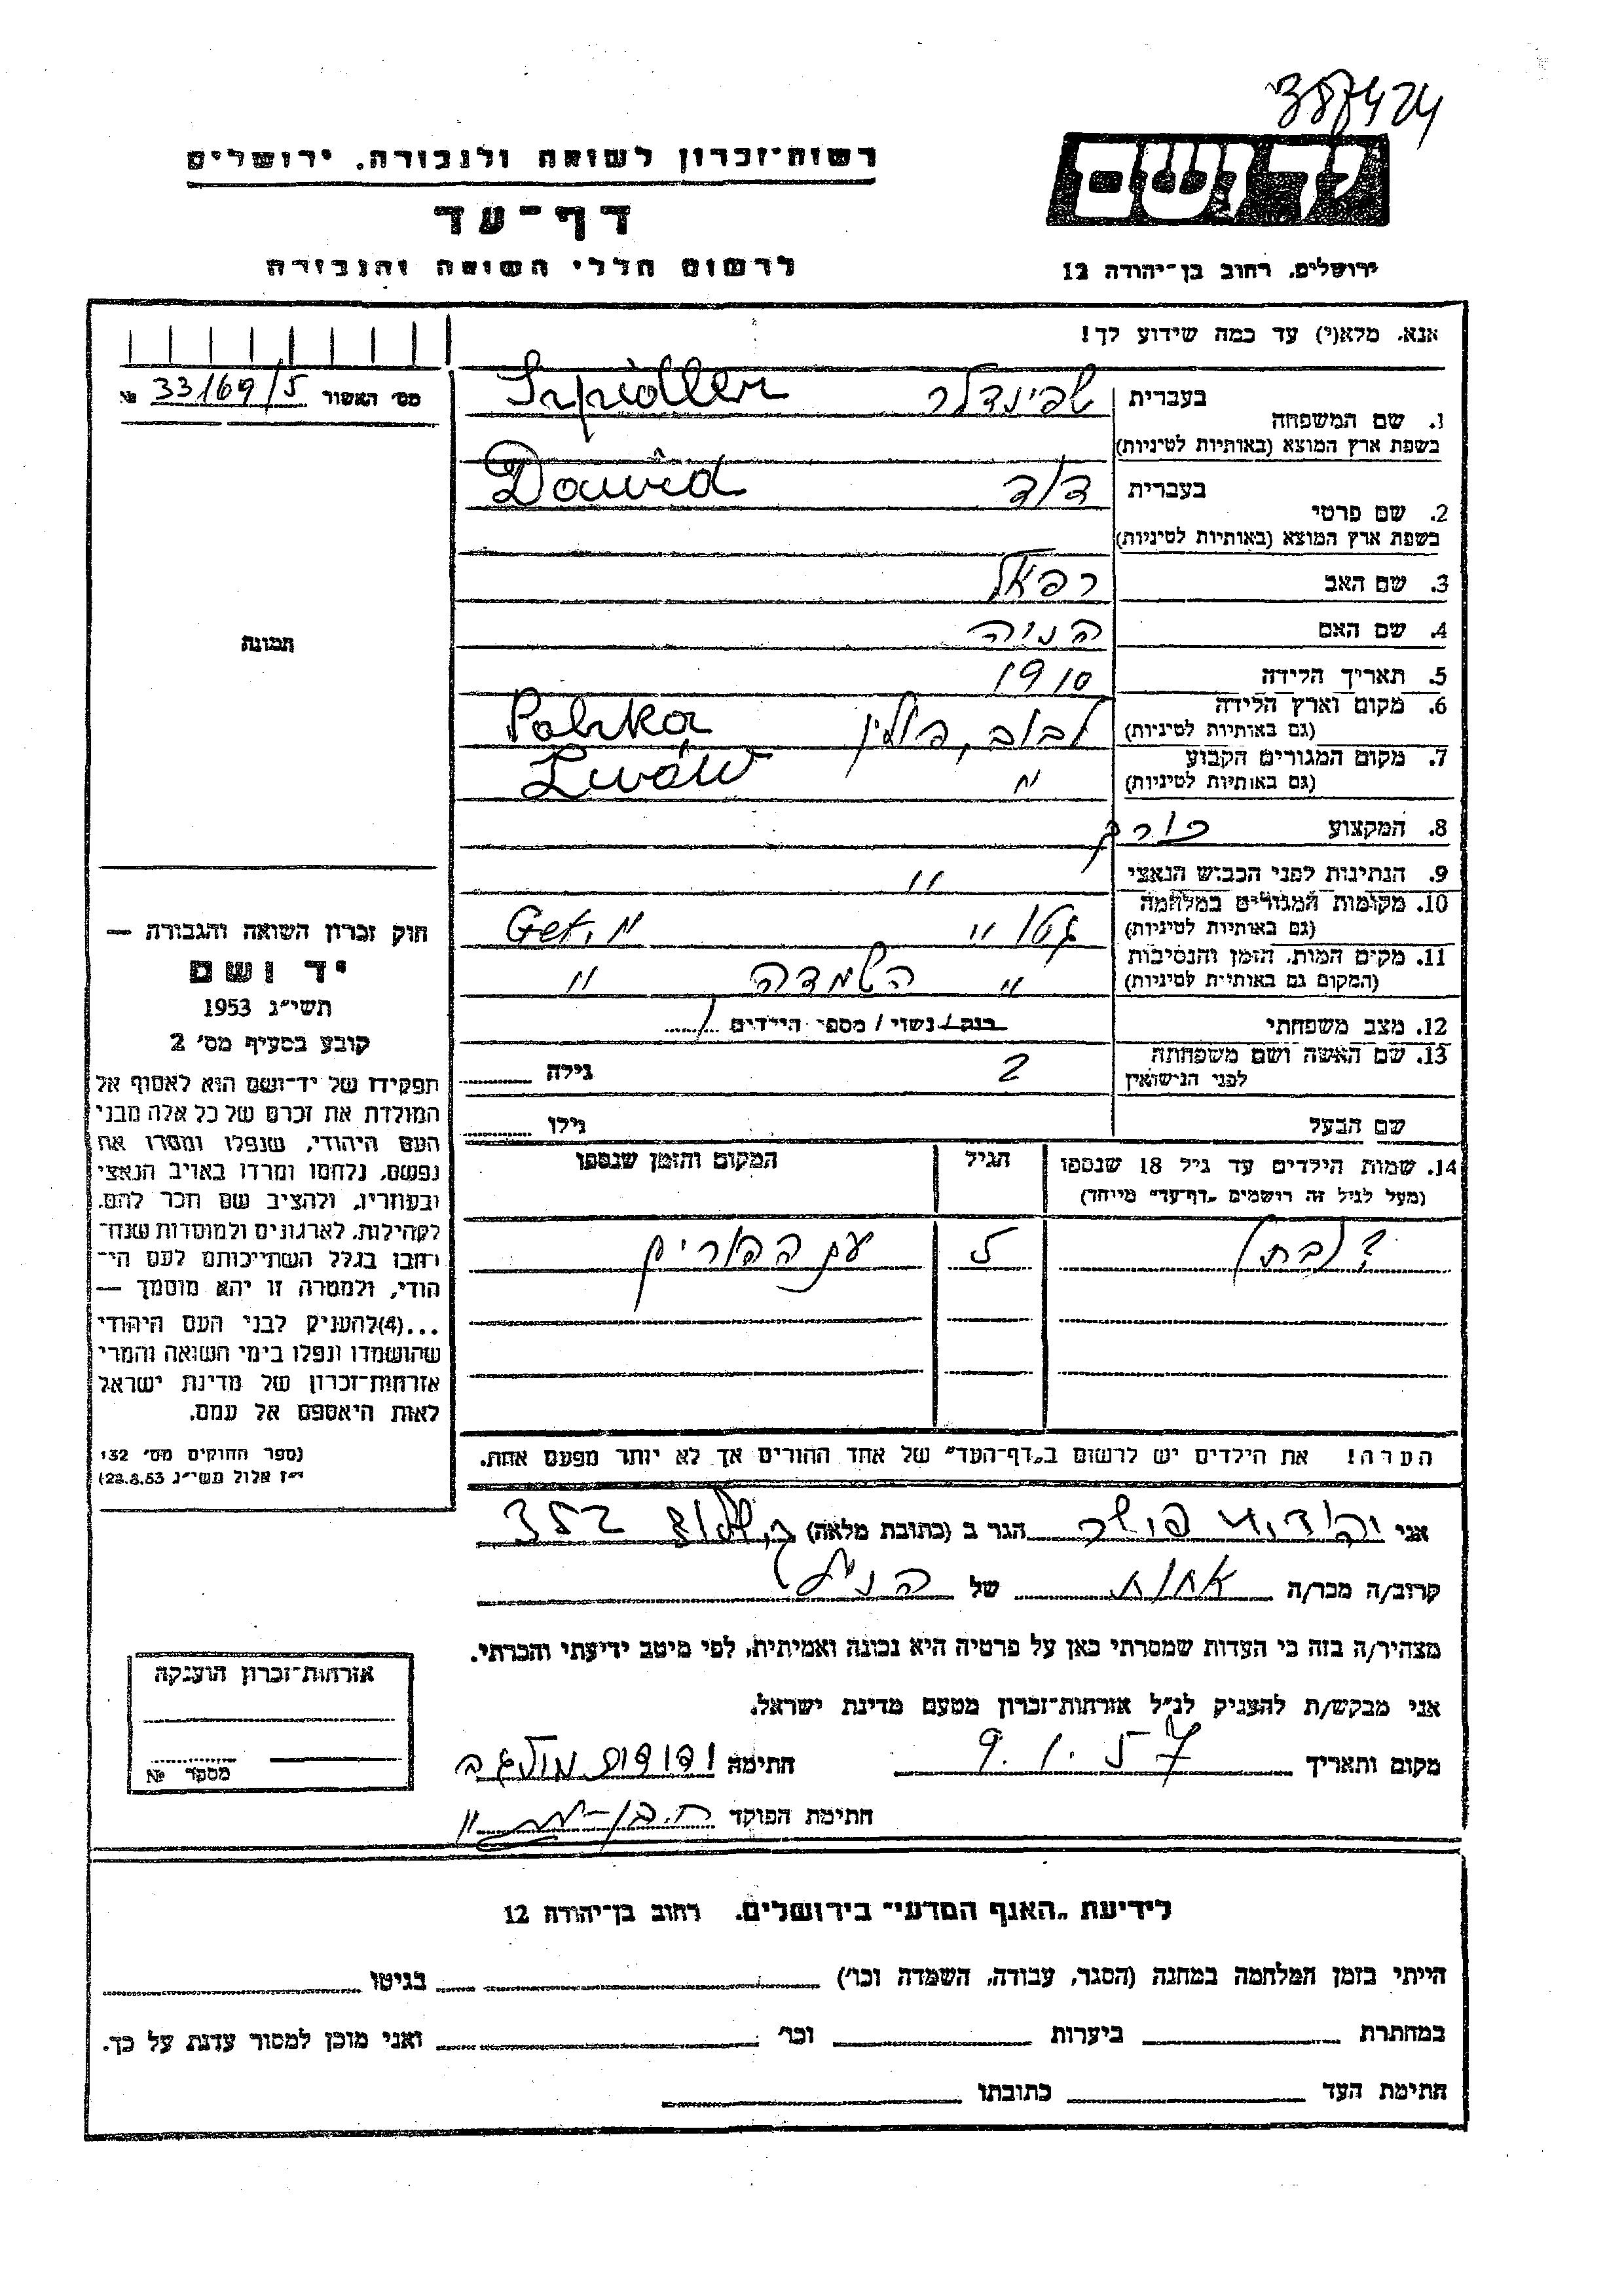 387424
יד ושם
רשות־זכרון לשואה ולגבורה, ירושלים
דף־עד
לרשום חללי השואה והגבורה
ירושלים, רחוב בן־יהודה 12
אנא, מלא(י) עד כמה שידוע לך!
מס׳ האשור 33/69/5 №
1. שם המשפחה בעברית שפינדלר Szpidler
בשפת ארץ המוצא (באותיות לטיניות)
2. שם פרטי בעברית דוד Dawid
בשפת ארץ המוצא (באותיות לטיניות)
3. שם האב רפאל
4. שם האם הניה
5. תאריך הלידה 1910
6. מקום וארץ הלידה לבוב, פולין Polska
(גם באותיות לטיניות)
7. מקום המגורים הקבוע " Lwów
(גם באותיות לטיניות)
8. המקצוע
9. הנתינות לפני הכבוש הנאצי "
10. מקומות המגורים במלחמה גטו " Get. "
(גם באותיות לטיניות)
11. מקום המות, הזמן והנסיבות " השמדה "
(המקום גם באותיות לטיניות)
12. מצב משפחתי רווק/ נשוי / מספר הילדים 1
13. שם האשה ושם משפחתה לפני הנישואין ? גילה
שם הבעל גילו
14. שמות הילדים עד גיל 18 שנספו הגיל המקום והזמן שנספו
(מעל לגיל זה רושמים „דף־עד" מיוחד)
? (בת) 5 עם ההורים
הערה! את הילדים יש לרשום ב„דף־העד" של אחד ההורים אך לא יותר מפעם אחת.
תמונה
חוק זכרון השואה והגבורה —
יד ושם
תשי״ג 1953
קובע בסעיף מס׳ 2
תפקידו של יד־ושם הוא לאסוף אל
המולדת את זכרם של כל אלה מבני
העם היהודי, שנפלו ומסרו את
נפשם, נלחמו ומרדו באויב הנאצי
ובעוזריו, ולהציב שם וזכר להם,
לקהילות, לארגונים ולמוסדות שנח־
רבו בגלל השתייכותם לעם הי־
הודי, ולמטרה זו יהא מוסמך —
...(4)להעניק לבני העם היהודי
שהושמדו ונפלו בימי השואה והמרי
אזרחות־זכרון של מדינת ישראל
לאות היאספם אל עמם.
(ספר החוקים מס׳ 132
י״ז אלול תשי״ג 28.8.53)
אני הגר ב (כתובת מלאה)
קרוב/ה מכר/ה אחות של הנ״ל
מצהיר/ה בזה כי העדות שמסרתי כאן על פרטיה היא נכונה ואמיתית, לפי מיטב ידיעתי והכרתי.
אני מבקש/ת להעניק לנ״ל אזרחות־זכרון מטעם מדינת ישראל.
מקום ותאריך 9.1.57 חתימה
חתימת הפוקד
אזרחות־זכרון הוענקה
מספר №
לידיעת „האגף המדעי" בירושלים, רחוב בן־יהודה 12
הייתי בזמן המלחמה במחנה (הסגר, עבודה, השמדה וכו׳) בגיטו
במחתרת ביערות וכו׳ ואני מוכן למסור עדות על כך.
חתימת העד כתובתו